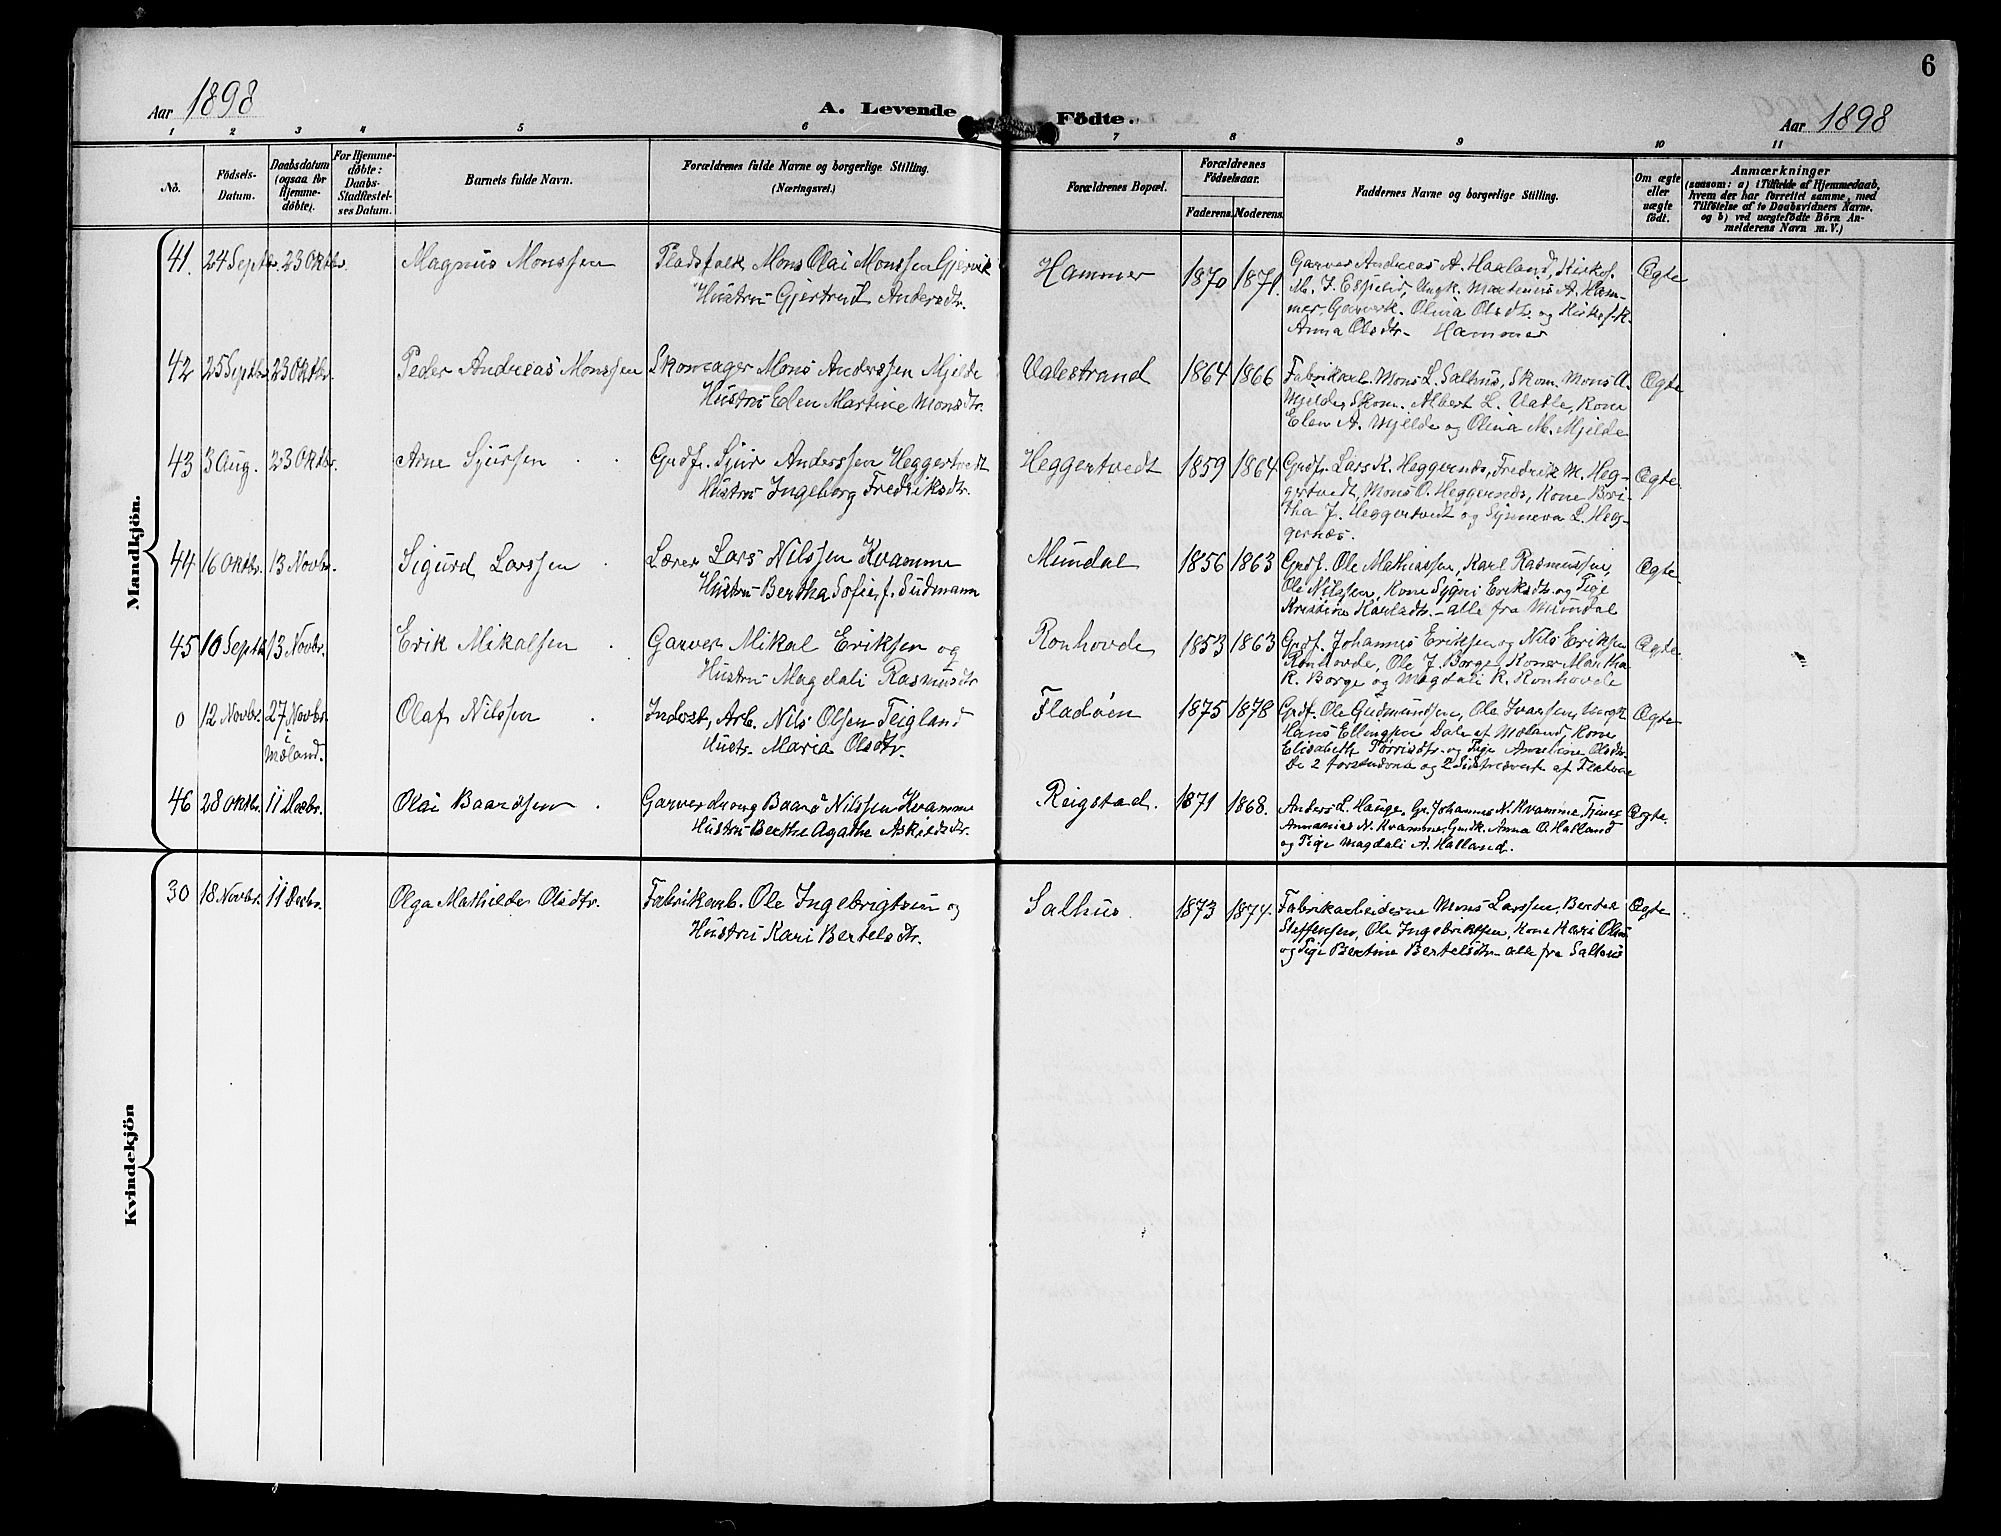 6
Aar 1898
A. Levende Födte.
Aar 1898
1 2 3 4 5 6 7 8 9 10 11
No.
Födsels-
Datum.
Daabsdatum
(ogsaa for
Hjemme-
døbte).
For Hjemme-
døbte:
Daabs-
Stadfæstel-
ses Datum.
Barnets fulde Navn.
Forældrenes fulde Navne og borgerlige Stilling.
(Næringsvei.)
Forældrenes Bopæl.
Forældrenes
Födselsaar.
Faderens. Moderens.
Faddernes Navne og borgerlige Stilling.
Om ægte
eller
uægte
født.
Anmærkninger
(saasom: a) i Tilfælde af Hjemmedaab,
hvem der har forrettet samme, med
Tilföielse af to Daabsvidners Navne,
og b) ved uægtefödte Börn An-
melderens Navn m. V.)
Mandkjön.
41. 24 Septbr. 23 Oktbr. Magnus Monssen
Pladsfolk Mons Olai Monssen Gjervik
Hustru Gjertrud Andersdtr.
Hammer 1870 1871.
Garver Andreas A. Haaland, Kirkes.
M. J. Espelid, Ungk. Martinus A. Ham-
mer, Garverk. Olina Olsdtr. og Kirkes.k.
Anna Olsdtr. Hammer
Ægte
42 25 Septbr. 23 Oktbr. Peder Andreas Monssen
Skomager Mons Anderssen Mjelde
Hustru Elen Martine Monsdtr.
Valestrand 1864 1866
Fabrikarb. Mons L. Salhus, Skom. Mons A.
Mjelde, Skom. Albert L. Vatle, Kone
Elen A. Mjelde og Olina M. Mjelde
Ægte
43 3 Aug. 23 Oktbr. Arne Sjursen
Grdf. Sjur Anderssen Heggertvedt
Hustru Ingeborg Fredriksdtr.
Heggertvedt 1859 1864
Grdf. Lars K. Heggernæs, Fredrik M. Heg-
gertvedt, Mons O. Heggernæs, Kone Bori-
tha J. Heggertvedt og Synneva L. Heg-
gernæs.
Ægte.
44 16 Oktbr. 13 Novbr. Sigurd Larssen
Lærer Lars Nilssen Kvamme
Hustru Bertha Sofie, f. Sudmann
Mundal 1856 1863
Grdf. Ole Mathiassen, Karl Rasmussen,
Ole Nilssen, Kone Sygni Eriksdtr. og Pige
Kristine Karlsdtr. - alle fra Mundal
Ægte
45 10 Septbr. 13 Novbr. Erik Mikalsen
Garver Mikal Eriksen og
Hustru Magdali Rasmusdtr
Ronhovde 1853 1863
Grdf. Johannes Eriksen og Nils Eriksen
Ronhovde, Ole J. Borge, Koner Martha
R. Borge og Magdali R. Ronhovde
Ægte.
0 12 Novbr. 27 Novbr.
i
Mæland. Olaf Nilssen
Inderst, Arb. Nils Olsen Teigland
Hustr. Maria Olsdtr.
Fladøen 1875 1878
Grdf. Ole Gudmundsen, Ole Ivarsen, Ungk
Hans Ellingsen Dale af Mæland, Kone
Elisabeth Torrisdtr. og Pige Anneline Olsdtr.
De 2 førstnævnte og 2 sidstnævnte af Flatøen
Ægte
46 28 Oktbr. 11 Decbr. Olai Baardsen
Garversvend Baard Nilssen Kvamme
Hustru Berthe Agathe Askildsdtr.
Reigstad. 1871 1868.
Anders L. Hauge, Gr. Johannes N. Kvamme,
Annanias N. Kvamme, Grdk. Anna O. Halland
og Pige Magdali A. Halland.
Ægte.
Kvindekjön
30 18 Novbr. 11 Decbr. Olga Mathilde Olsdtr.
Fabrikarb. Ole Ingebrigtsen og
Hustru Kari Bertelsdtr.
Salhus 1873 1874.
Fabrikarbeiderne Mons Larssen, Bertel
Steffensen, Ole Ingebriktsen, Kone Kari Olsdtr
og Pige Bertine Bertelsdtr - alle fra Salhus
Ægte